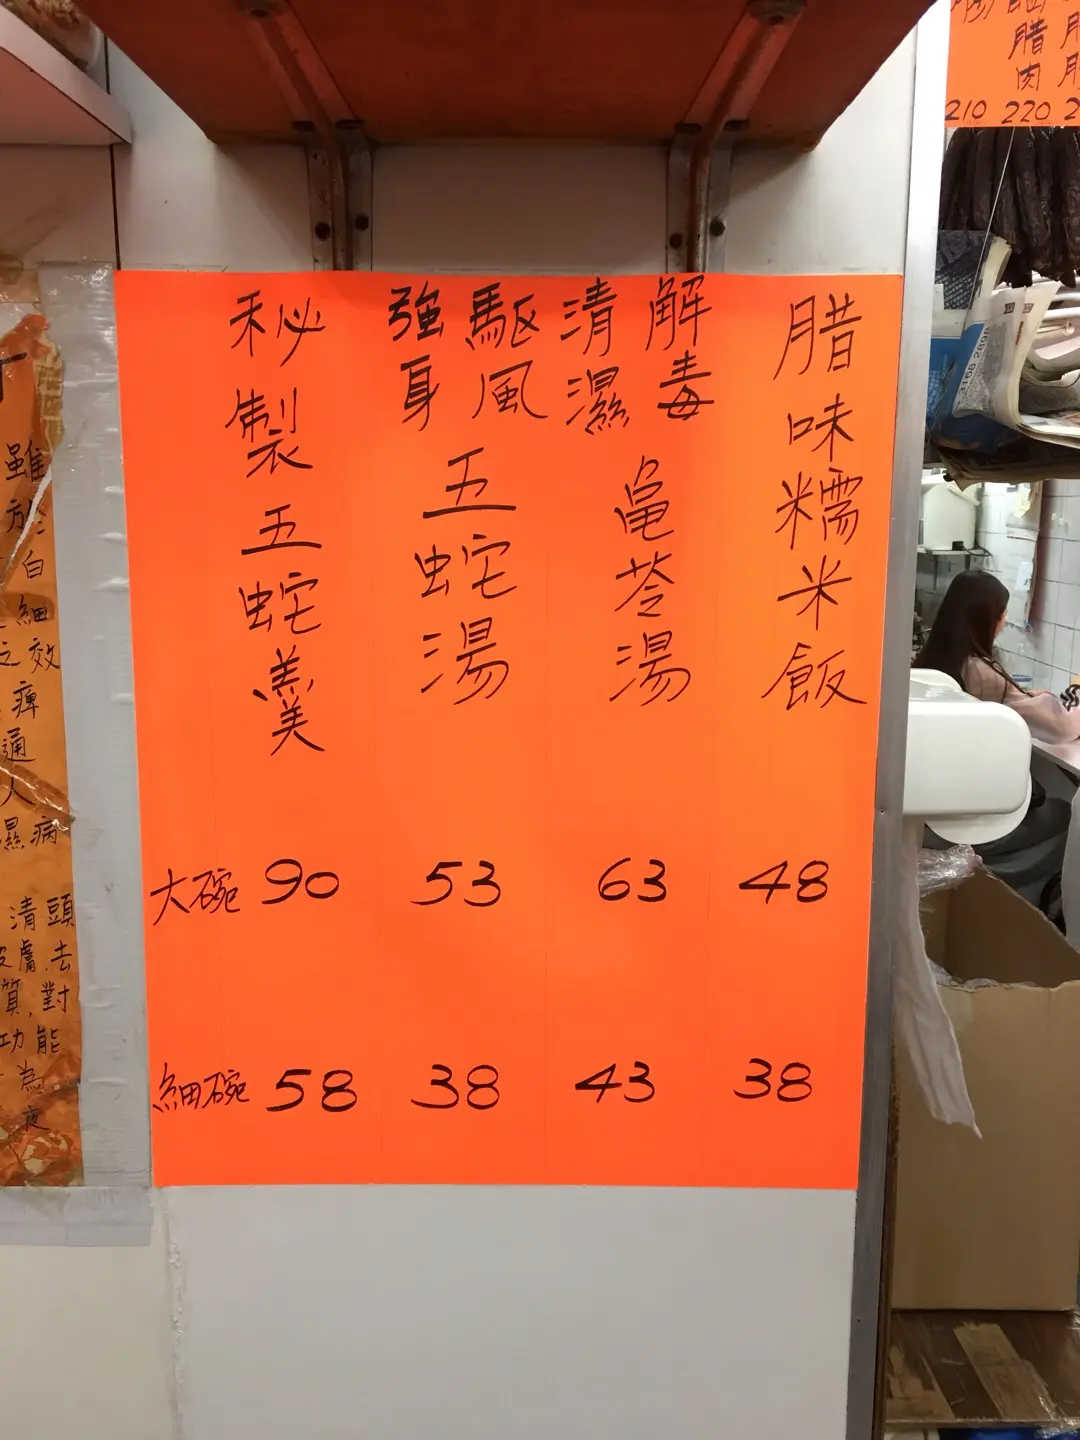 秘製五蛇羹
驅風強身
五蛇湯
解毒清濕
龟苓湯
腊味糯米飯
大碗 90 53 63 48
細碗 58 38 43 38
腊肉
210 220
雖
於
白
細
之效
痺
通
人
濕病
清頭
膚.去
質,對
功能
為
夜